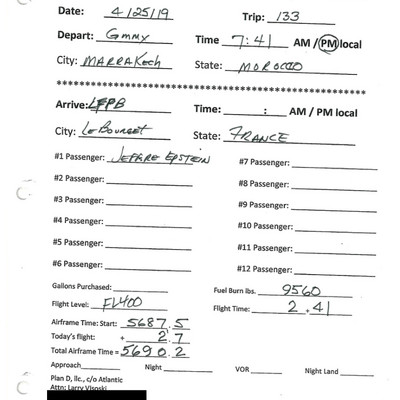 Date: 4/25/19 Trip: 133
Depart: GMMX Time 7:41 AM / PM local
City: MARRAKECH State: MOROCCO
************************************************************
Arrive: LFPB Time: : AM / PM local
City: Le Bourget State: FRANCE
#1 Passenger: JEFFRE EPSTEIN #7 Passenger:
#2 Passenger: #8 Passenger:
#3 Passenger: #9 Passenger:
#4 Passenger: #10 Passenger:
#5 Passenger: #11 Passenger:
#6 Passenger: #12 Passenger:
Gallons Purchased: Fuel Burn lbs. 9560
Flight Level: FL400 Flight Time: 2.41
Airframe Time: Start: 5687.5
Today's flight: + 2.7
Total Airframe Time = 5690.2
Approach Night VOR Night Land
Plan D, llc, c/o Atlantic
Attn: Larry Visoski